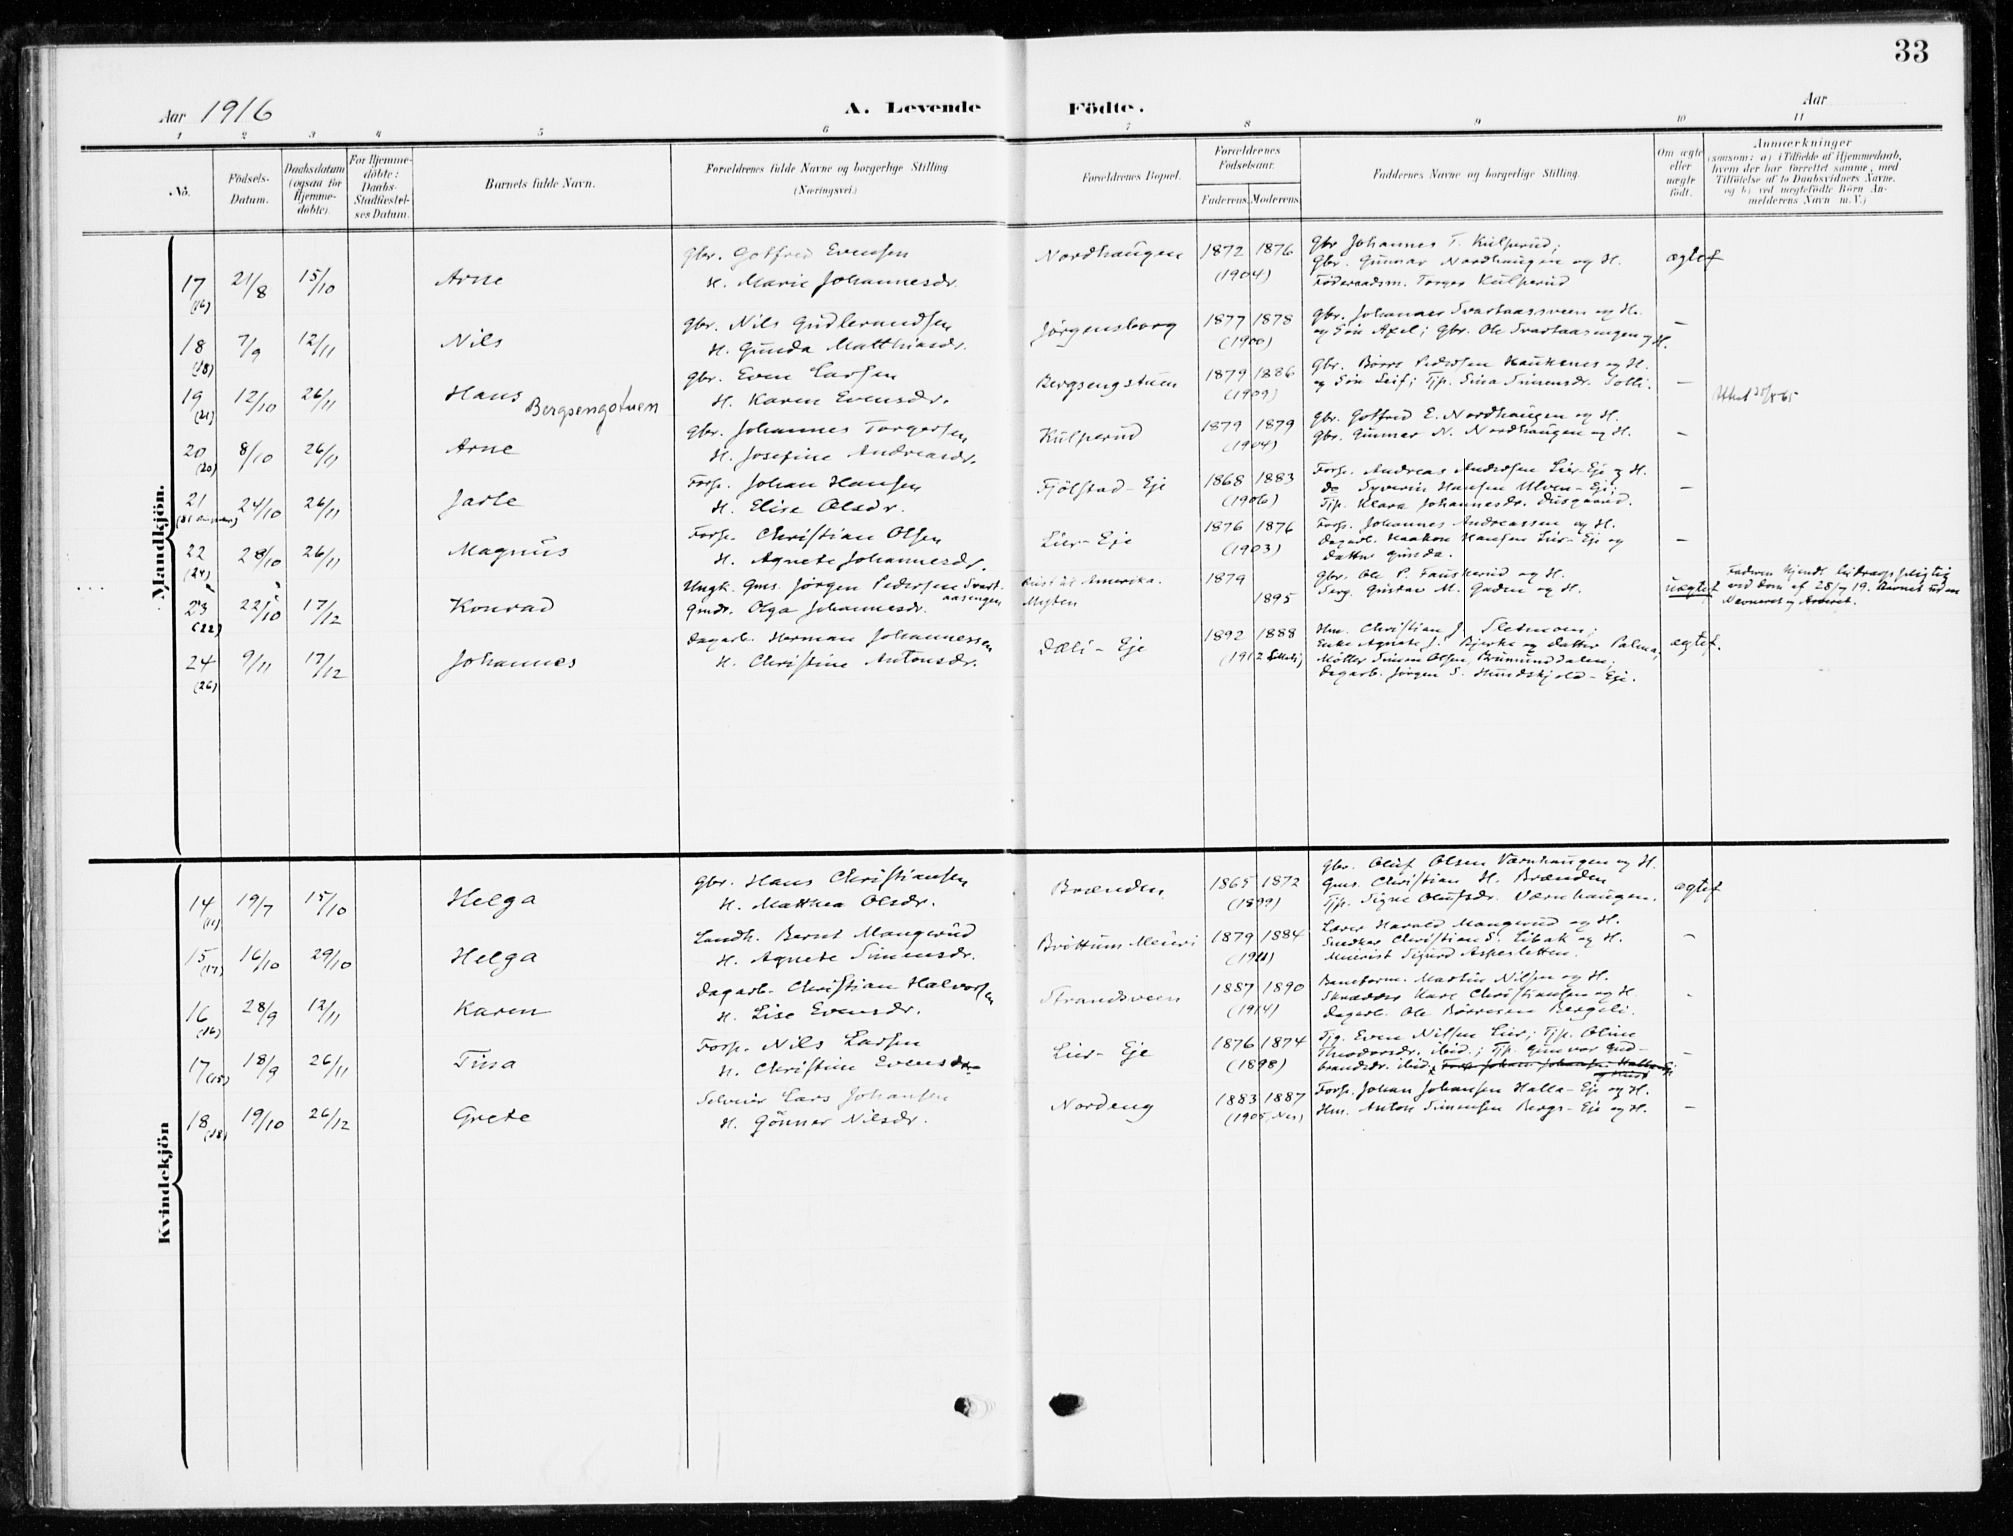 33
Aar 1916
A. Levende Födte.
Aar
1 2 3 4 5 6 7 8 9 10 11
No.
Födsels-Datum.
Daabsdatum (ogsaa for Hjemme-døbte).
For Hjemme-døbte: Daabs-Stadfæstel-ses Datum.
Barnets fulde Navn.
Forældrenes fulde Navne og borgerlige Stilling (Næringsvei.)
Forældrenes Bopæl.
Forældrenes Fødselsaar.
Faderens. Moderens.
Faddernes Navne og borgerlige Stilling.
Om ægte eller uægte født.
Anmærkninger
(saasom: a) i Tilfælde af Hjemmedaab,
hvem der har forrettet samme, med
Tilføielse af to Daabsvidners Navne.
og b) ved uægtefødte Børn An-
melderens Navn m. V.)
Mandkjön.
17 (16) 21/8 15/10 Arne
Gbr. Gotfred Evensen
H. Marie Johannesdr.
Nordhaugen 1872 1876 (1904)
Gbr Johannes T. Kulperud;
Gbr. Gunnar Nordhaugen og H.
Föderaadsm. Torger Kulperud
ægtef
18 (18) 7/9 12/11 Nils
Gbr. Nils Gudbrandsen
H. Gunda Matthiasdr.
Jørgensborg 1877 1878 (1900)
Gbr. Johannes Svartaassveen og H.
og Søn Axel; Gbr. Ole Svartaasengen og H.
–
19 (21) 12/10 26/11 Hans Bergsengstuen
Gbr. Even Larsen
H. Karen Evensdr.
Bergsengstuen 1879 1886 (1909)
Gbr. Børre Pedersen Haukenes og H.
og Søn Leif; Tjp. Sina Simensdr. Solli.
–
20 (20) 8/10 26/11 Arne
Gbr. Johannes Torgersen
H. Josefine Andreasdr.
Kulperud 1879 1879 (1904)
Gbr. Gotfred E. Nordhaugen og H.
Gbr. Gunnar N. Nordhaugen og H.
–
21 24/10 26/11 Jarle
Forp. Johan Hansen
H. Elise Olsdr.
Fjölstad-Eje 1868 1883 (1906)
Forp. Andreas Andersen Lier-Eje og H.
do Syverin Hansen Ulven-Eje;
Tjp. Klara Johannesdr. Dusgaard.
–
22 (24) 28/10 26/11 Magnus
Forp. Christian Olsen
H. Agnete Johannesdr.
Lier-Eje 1876 1876 (1903)
Forp. Johannes Andreassen og H.
Dagarb. Haakon Hansen Lier-Eje og
Datter Gunda.
–
23 (22) 22/10 17/12 Konrad
Ungk. Gms. Jørgen Pedersen Svart-
aasengen
Gmdr. Olga Johannesdr.
Amerika.
Myten
1879 1895
Gbr. Ole P. Fauskerud og H.
Serg. Gustav M. Gaden og H.
uægtef
Faderen kjendt bidragspligtig
ved dom af 28/7 19. Barnet
24 (26) 9/11 17/12 Johannes
Dagarb. Herman Johannessen
H. Christine Antonsdr.
Dæli-Eje 1892 1888
Hm. Christian J. Sletmoen;
Enke Agnete J. Bjerke og datter Palma;
Møller Simen Olsen, Brumunddalen;
Dagarb. Jørgen S. Hundskjold-Eje.
ægtef.
Kvindekjön
14 (11) 19/7 15/10 Helga
Gbr. Hans Christiansen
H. Mathea Olsdr.
Brænden 1865 1872 (1899)
Gbr. Oluf Olsen Værnhaugen og H.
Gms. Christian H. Brænden
Tjp. Signe Olufsdr. Værnhaugen.
ægtef
15 (17) 16/10 29/10 Helga
Landh. Bernt Mangerud
H. Agnete Simensdr.
Brøttum Meieri 1879 1884 (1911)
Lærer Harald Mangerud og H.
Snedker Christian S. Libak og H.
Meierist Sigurd Aspesletten.
–
16 (16) 28/9 12/11 Karen
Dagarb. Christian Halvorsen
H. Lise Evensdr.
Strandsveen 1887 1890 (1914)
Baneform. Martin Nilsen og H.
Skrædder Karl Christiansen og H.
Dagarb. Ole Børresen Bergeli.
–
17 (15) 18/9 26/11 Tina
Forp. Nils Larsen
H. Christine Evensdr.
Lier-Eje 1876 1874 (1898)
Tjg. Even Nilsen Lier; Tjp. Oline
Theodorsdr. ibid.; Tjp. Gunvor Gud-
brandsdr. ibid.; Forp. Johan Johansen Halla-Eje
og Hust
–
18 (18) 19/10 26/12 Grete
Selveier Lars Johansen
H. Gönner Nilsdr.
Nordeng 1883 1887 (1905, Nes)
Forp. Johan Johansen Halla-Eje og H.
Hm. Anton Simensen Bergs-Eje og H.
–